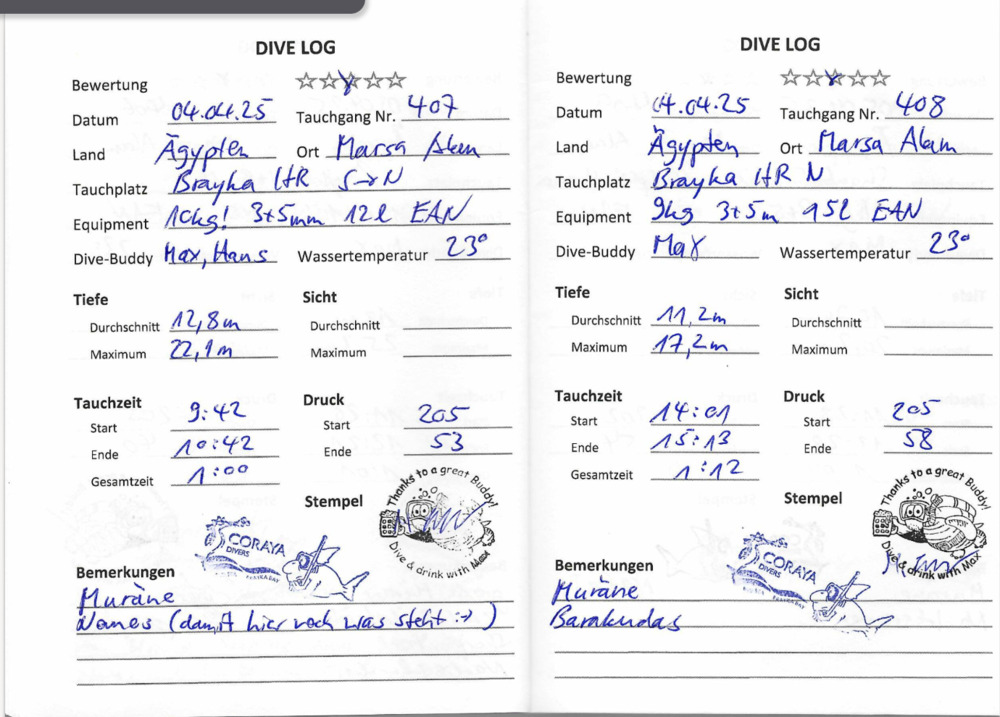 DIVE LOG
Bewertung
Datum 04.04.25 Tauchgang Nr. 407
Land Ägypten Ort Marsa Alam
Tauchplatz Brayka HR S→N
Equipment 10kg! 3+5mm 12l EAN
Dive-Buddy Max, Hans Wassertemperatur 23°
Tiefe Sicht
Durchschnitt 12,8m Durchschnitt
Maximum 22,1m Maximum
Tauchzeit Druck
Start 9:42 Start 205
Ende 10:42 Ende 53
Gesamtzeit 1:00
Stempel
Thanks to a great Buddy!
Dive & drink with Max
CORAYA
DIVERS
Bemerkungen
Muräne
(damit hier noch was steht :-))
DIVE LOG
Bewertung
Datum 04.04.25 Tauchgang Nr. 408
Land Ägypten Ort Marsa Alam
Tauchplatz Brayka HR N
Equipment 9kg 3+5m 15l EAN
Dive-Buddy Max Wassertemperatur 23°
Tiefe Sicht
Durchschnitt 11,2m Durchschnitt
Maximum 17,2m Maximum
Tauchzeit Druck
Start 14:01 Start 205
Ende 15:13 Ende 58
Gesamtzeit 1:12
Stempel
Thanks to a great Buddy!
Dive & drink with Max
CORAYA
DIVERS
Bemerkungen
Muräne
Barakudas